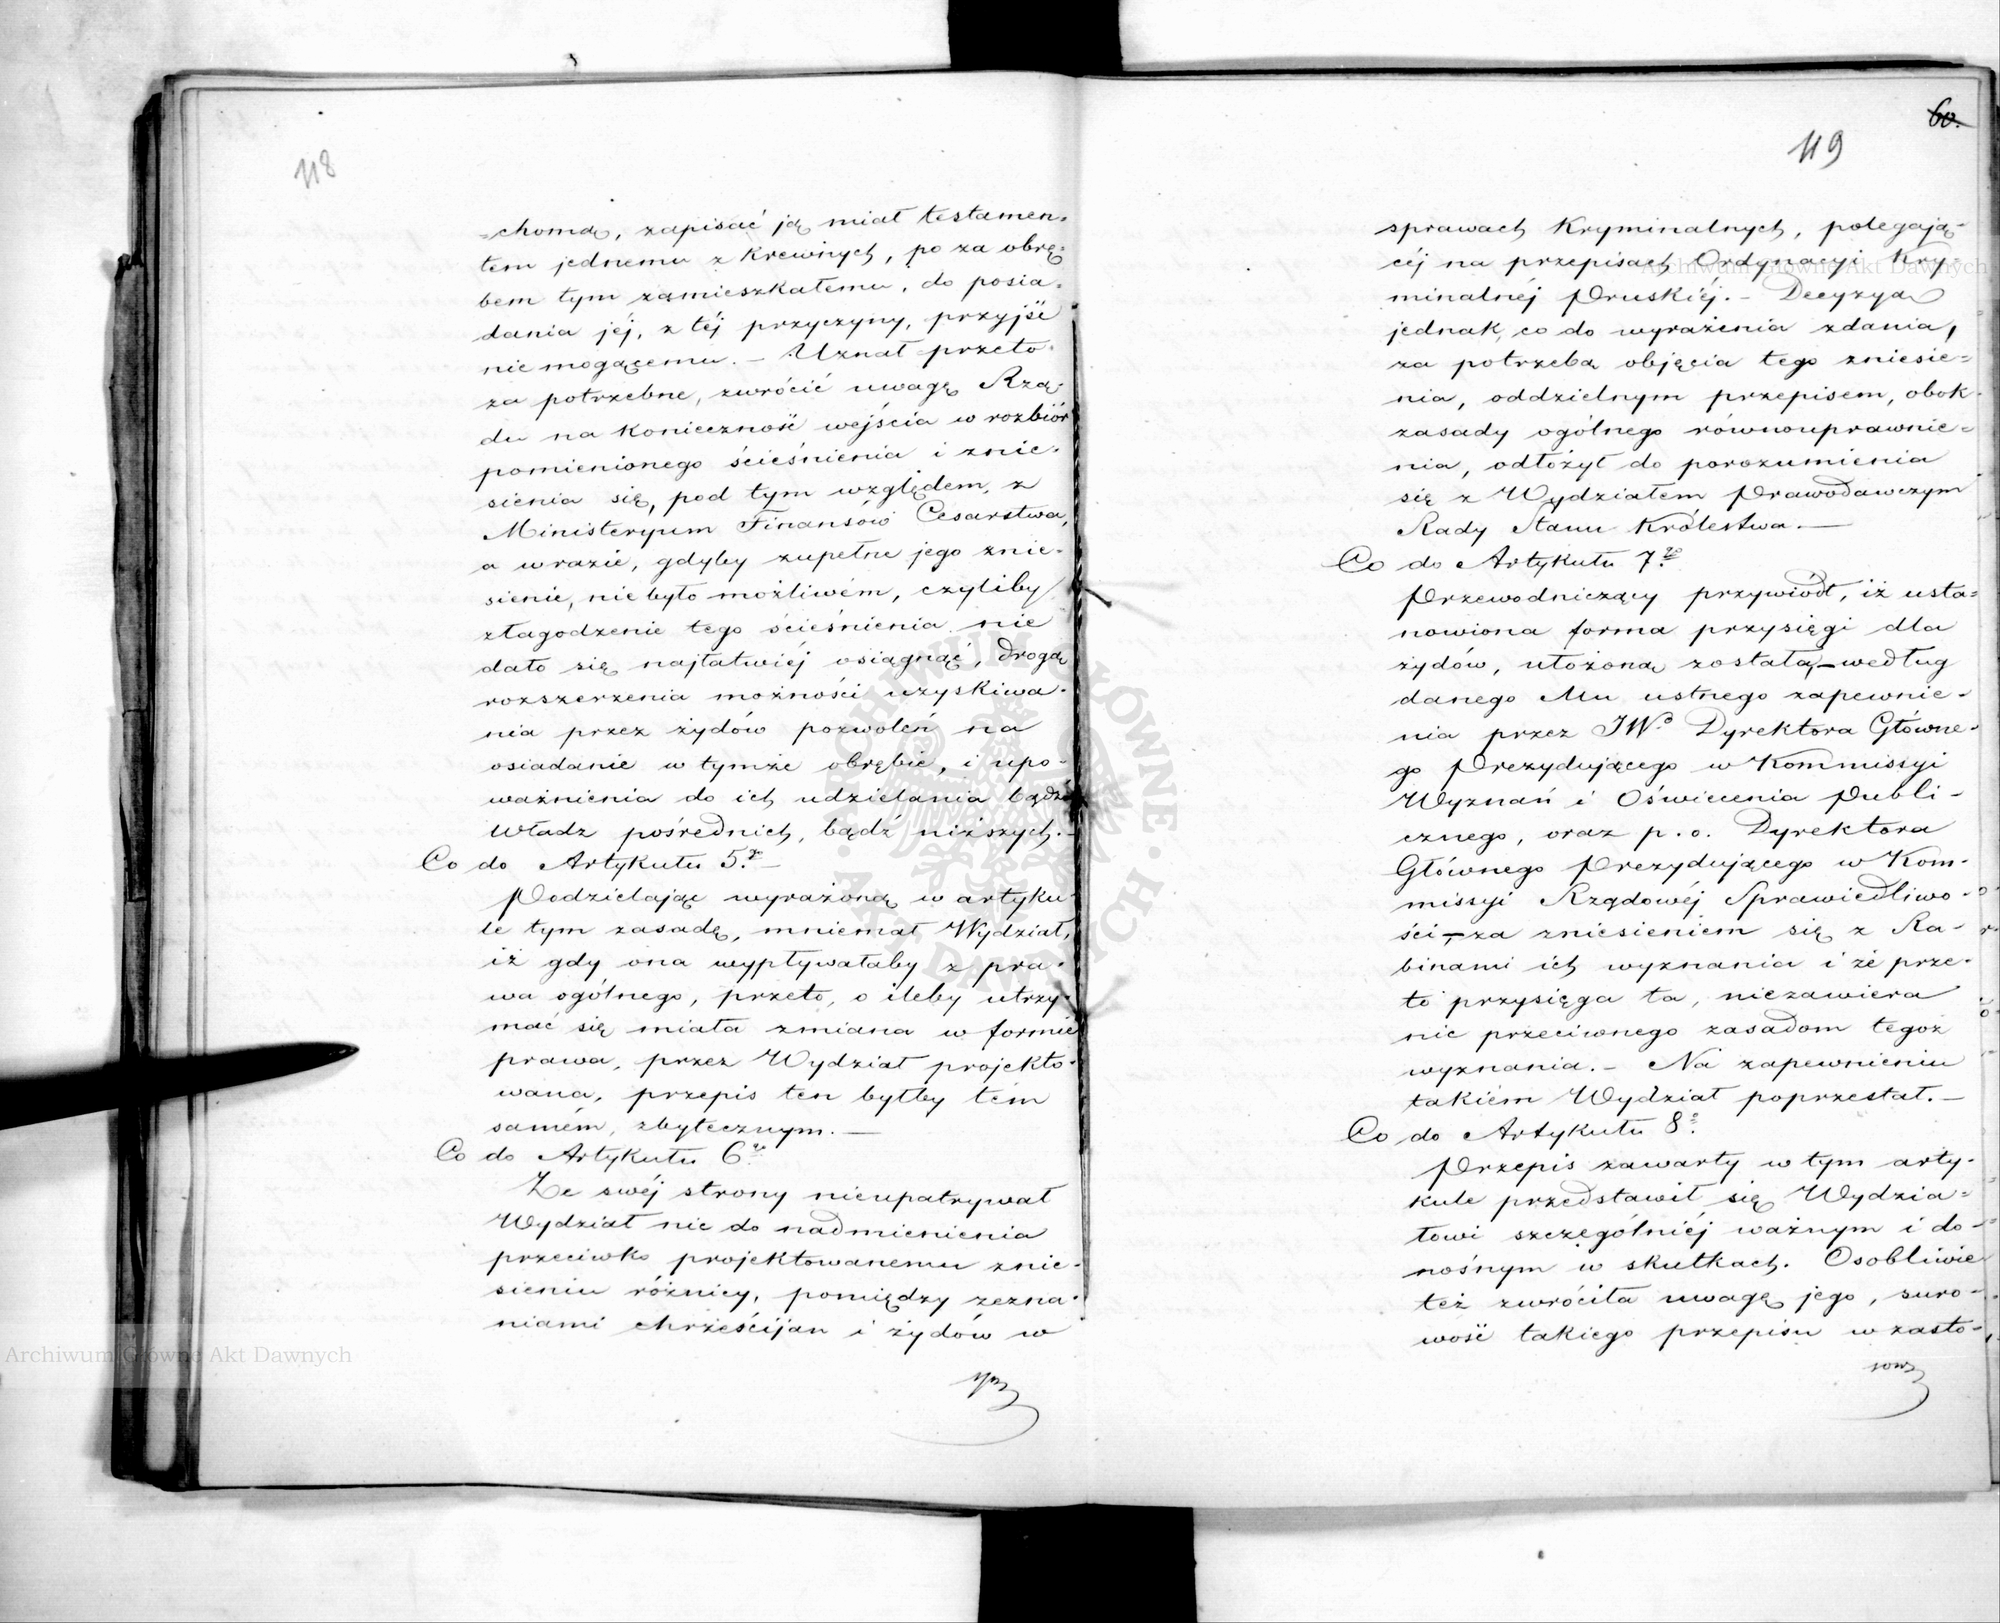 118
=chomą, zapisać ją miał testamen=
tem jednemu z krewnych, po za obrę=
bem tym zamieszkałemu, do posia=
dania jéj, z téj przyczyny, przyjść
nie mogącemu. – Uznał przeto
za potrzebne, zwrócić uwagę Rzą=
du na konieczność wejścia w rozbiór
pomienionego ścieśnienia i znie=
sienia się, pod tym względem, z
Ministeryum Finansów Cesarstwa,
a w razie, gdyby zupełne jego znie=
sienie, nie było możliwém, czyliby
złagodzenie tego ścieśnienia nie
dało się najłatwiéj osiągnąć, drogą
rozszerzenia możności uzyskiwa=
nia przez żydów pozwoleń na
osiadanie w tymże obrębie, i upo=
ważnienia do ich udzielania bądź
Władz pośrednich, bądź niższych. –
Co do Artykułu 5.go –
Podzielając wyrażoną w artyku=
le tym zasadę, mniemał Wydział,
iż gdy ona wypływałaby z pra=
wa ogólnego, przeto, o ileby utrzy=
mać się miała zmiana w formie
prawa, przez Wydział projekto=
wana, przepis ten byłby tém
samém, zbytecznym. —
Co do Artykułu 6.go
Ze swéj strony nieupatrywał
Wydział nic do nadmienienia
przeciwko projektowanemu znie=
sieniu różnicy, pomiędzy zezna=
niami chrześcijan i żydów w
60.
119
sprawach Kryminalnych, polegają=
céj na przepisach Ordynacyi Kry=
minalnéj Pruskiéj. – Decyzya
jednak, co do wyrażenia zdania,
za potrzebą objęcia tego zniesie=
nia, oddzielnym przepisem, obok
zasady ogólnego równouprawnie=
nia, odłożył do porozumienia
się z Wydziałem Prawodawczym
Rady Stanu Królestwa. —
Co do Artykułu 7.go
Przewodniczący przywiódł, iż usta=
nowiona forma przysięgi dla
żydów, ułożoną została – według
danego Mu ustnego zapewnie=
nia przez JWo Dyrektora Główne=
go Prezydującego w Kommissyi
Wyznań i Oświecenia Publi=
cznego, oraz p. o. Dyrektora
Głównego Prezydującego w Kom=
missyi Rządowéj Sprawiedliwo=
ści – za zniesieniem się z Ra=
binami ich wyznania i że prze=
to przysięga ta, niezawiera
nic przeciwnego zasadom tegoż
wyznania. – Na zapewnieniu
takiém Wydział poprzestał. –
Co do Artykułu 8.o
Przepis zawarty w tym arty=
kule przedstawił się Wydzia=
łowi szczególniéj ważnym i do=
nośnym w skutkach. Osobliwie
też zwróciła uwagę jego, suro=
wość takiego przepisu w zasto=
sow
Archiwum Główne Akt Dawnych
Archiwum Główne Akt Dawnych
ARCHIWUM GŁÓWNE AKT DAWNYCH